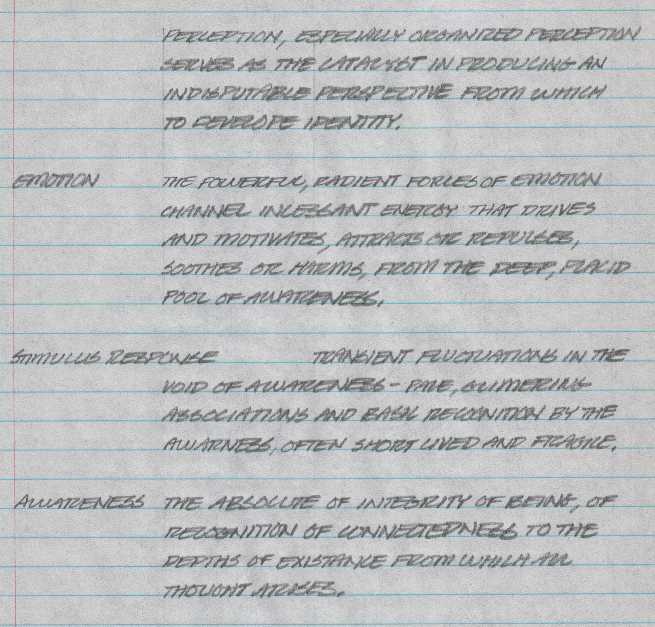 PERCEPTION, ESPECIALLY ORGANIZED PERCEPTION
SERVES AS THE CATALYST IN PRODUCING AN
INDISPUTABLE PERSPECTIVE FROM WHICH
TO DEVELOPE IDENTITY.
EMOTION THE POWERFUL, RADIENT FORCES OF EMOTION
CHANNEL INCESSANT ENERGY THAT DRIVES
AND MOTIVATES, ATTRACTS OR REPULSES,
SOOTHES OR HARMS, FROM THE DEEP, PLACID
POOL OF AWARENESS.
STIMULUS RESPONSE TRANSIENT FLUCTUATIONS IN THE
VOID OF AWARENESS - PALE, GLIMERING
ASSOCIATIONS AND BASAL RECOGNITION BY THE
AWARNESS, OFTEN SHORT LIVED AND FRAGILE.
AWARENESS THE ABSOLUTE OF INTEGRITY OF BEING, OF
RECOGNITION OF CONNECTEDNESS TO THE
DEPTHS OF EXISTANCE FROM WHICH ALL
THOUGHT ARISES.